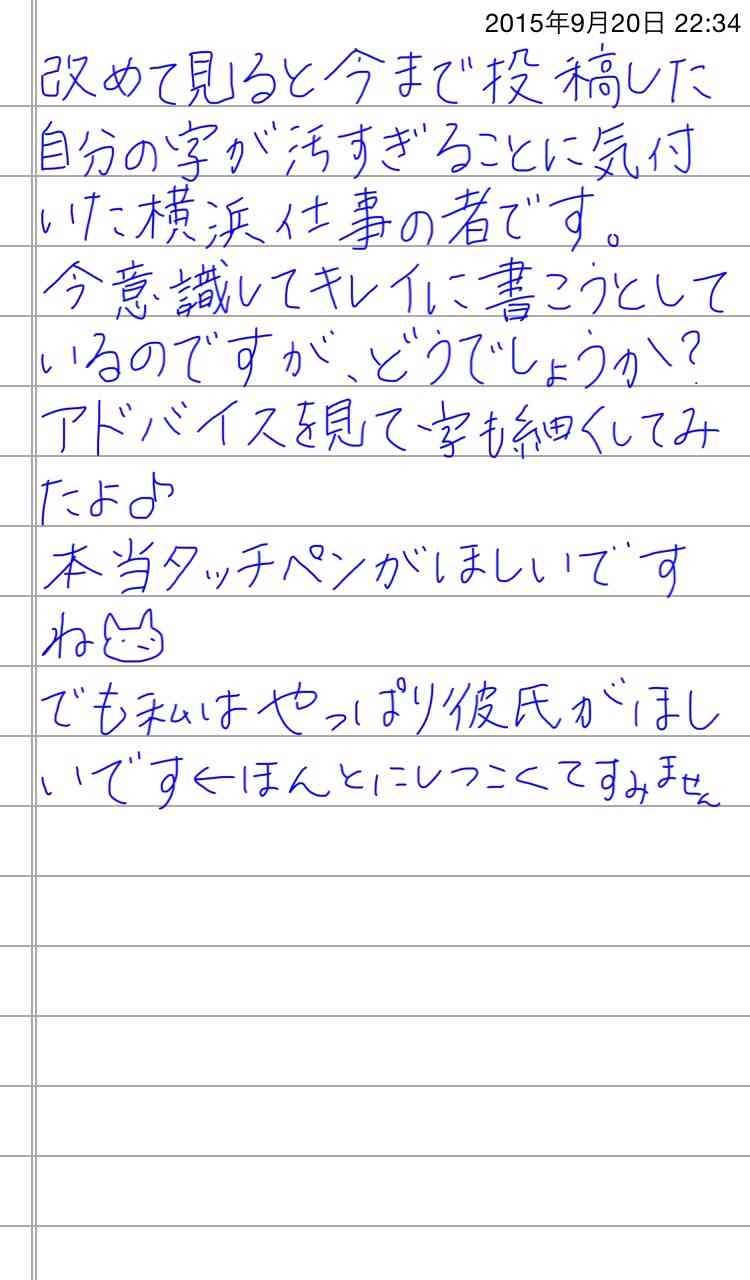 2015年9月20日 22:34
改めて見ると今まで投稿した
自分の字が汚すぎることに気付
いた横浜仕事の者です。
今意識してキレイに書こうとして
いるのですが、どうでしょうか？
アドバイスを見て字も細くしてみ
たよ♪
本当タッチペンがほしいです
ね
でも私はやっぱり彼氏がほし
いです←ほんとにしつこくてすみません